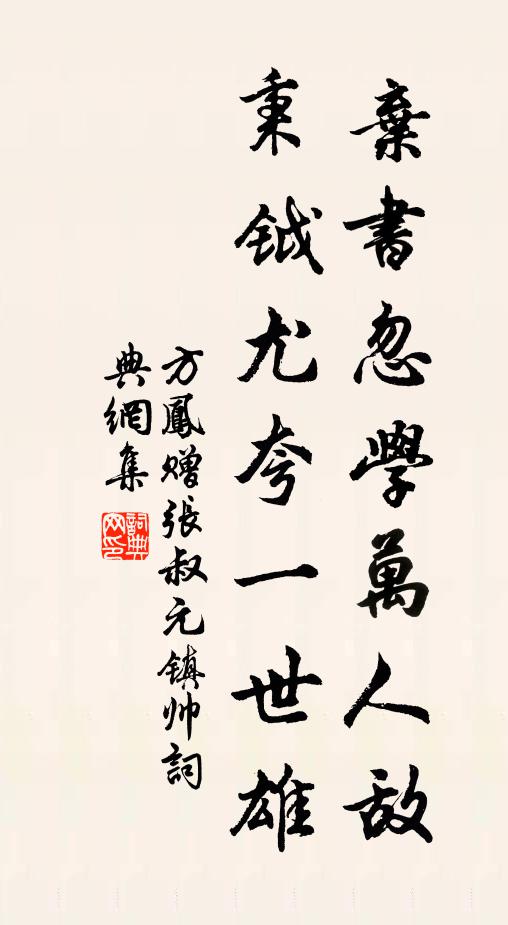 棄書忽學萬人敵
秉鉞尤夸一世雄
方鳳贈張叔元鎮帅詞
典網集
詞典
网印